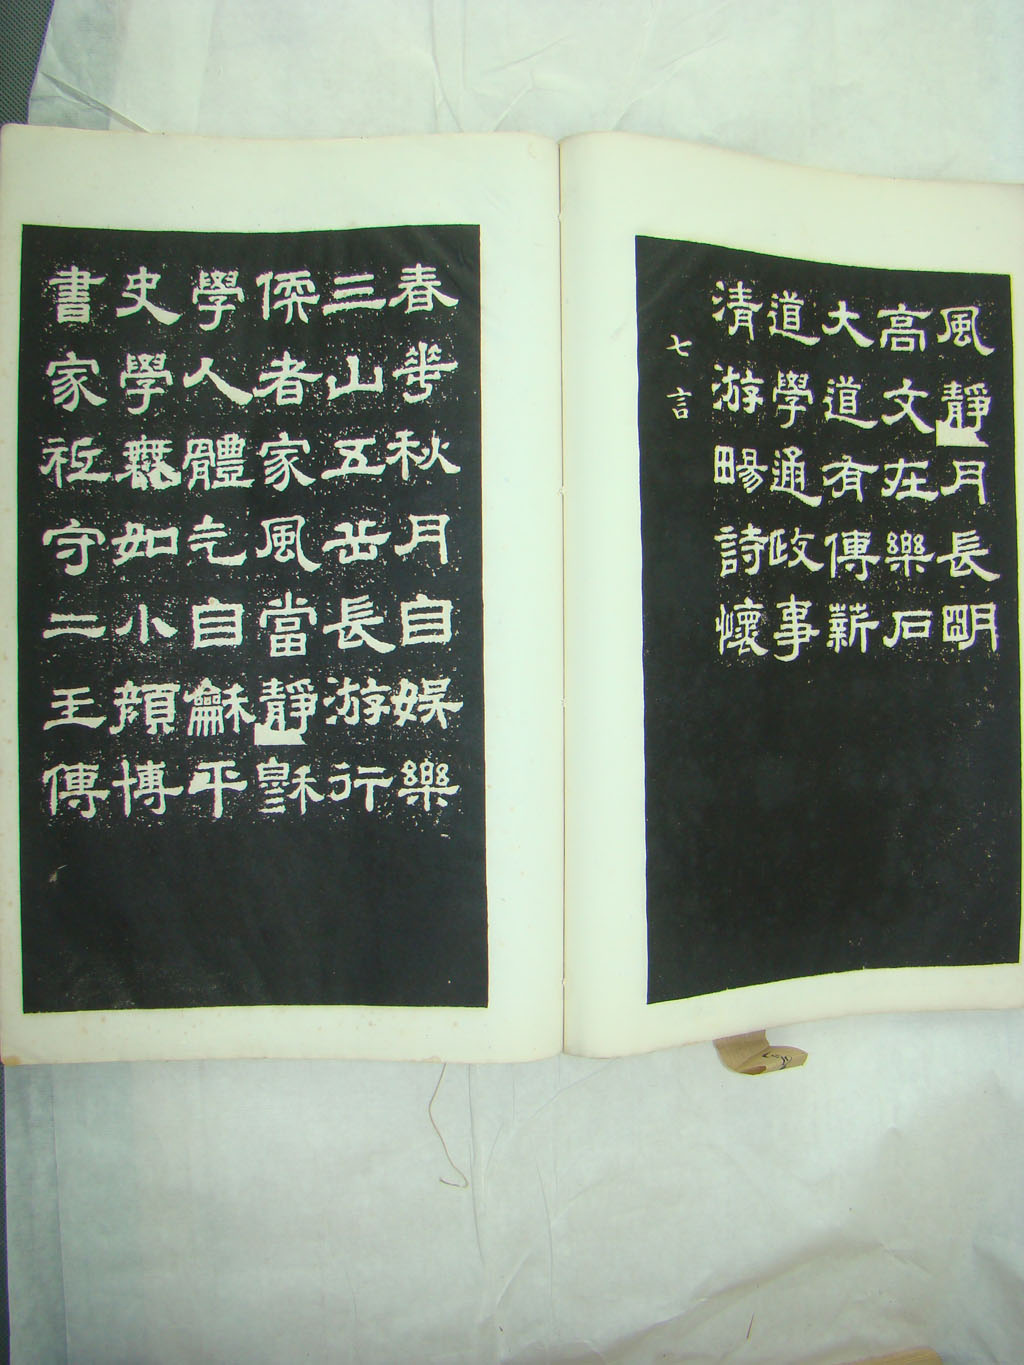 風靜月長朙
高文在樂石
大道有傳薪
道學通政事
清游畼詩懷
七言
春華秋月自娛樂
三山五岳長游行
偄者家風當靜穆
學人體气自龢平
史學無如小顏博
書家祗守二王傳